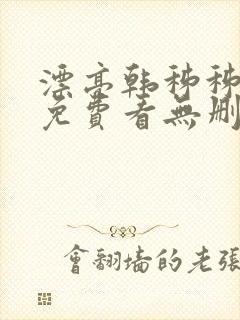 漂亮韩秭秭
免費看無删
會翻墙的老張